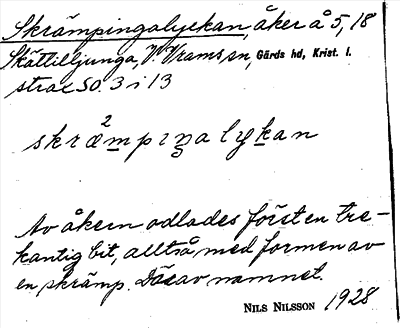 Skrämpingalyckan, åker å 5, 18
Skättilljunga, V. Vrams sn, Gärds hd, Krist. l.
strax SO. 3 i 13
2
skræmpıŋalykan
Av åkern odlades först en tre-
kantig bit, alltså, med formen av
en skrämp. Därav namnet.
NILS NILSSON 1928